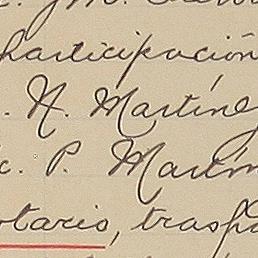 participación
. N. Martíne
c. P. Martín
otario, trasp